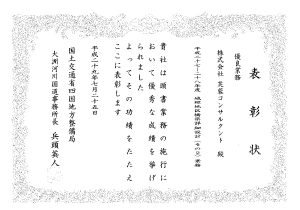 表彰状
優良業務
株式会社 芙蓉コンサルタント 殿
平成二十七-二十八年度 城隍地区構築詳細設計(その2)業務
貴社は頭書業務の施行に
おいて優秀な成績を挙げ
られました
よってその功績をたたえ
ここに表彰します
平成二十九年七月二十五日
国土交通省四国地方整備局
大洲河川国道事務所長 兵頭英人